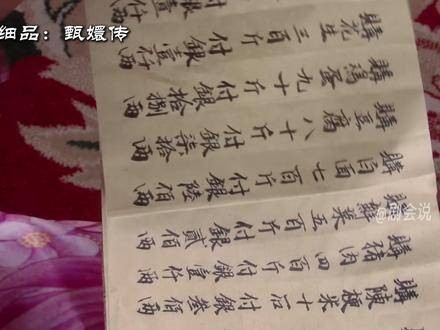 细品：甄嬛传
銀壹仟兩
購花生三百斤
付銀壹仟兩
購鷄蛋九十斤
付銀拾捌兩
購豆腐八十斤
付銀柒拾兩
購白面七百斤
付銀陸佰兩
購鮮菜五百斤
付銀貳佰兩
購猪肉四百斤
付銀壹仟兩
購陳粳米十石
付銀叁佰兩
@剧会说